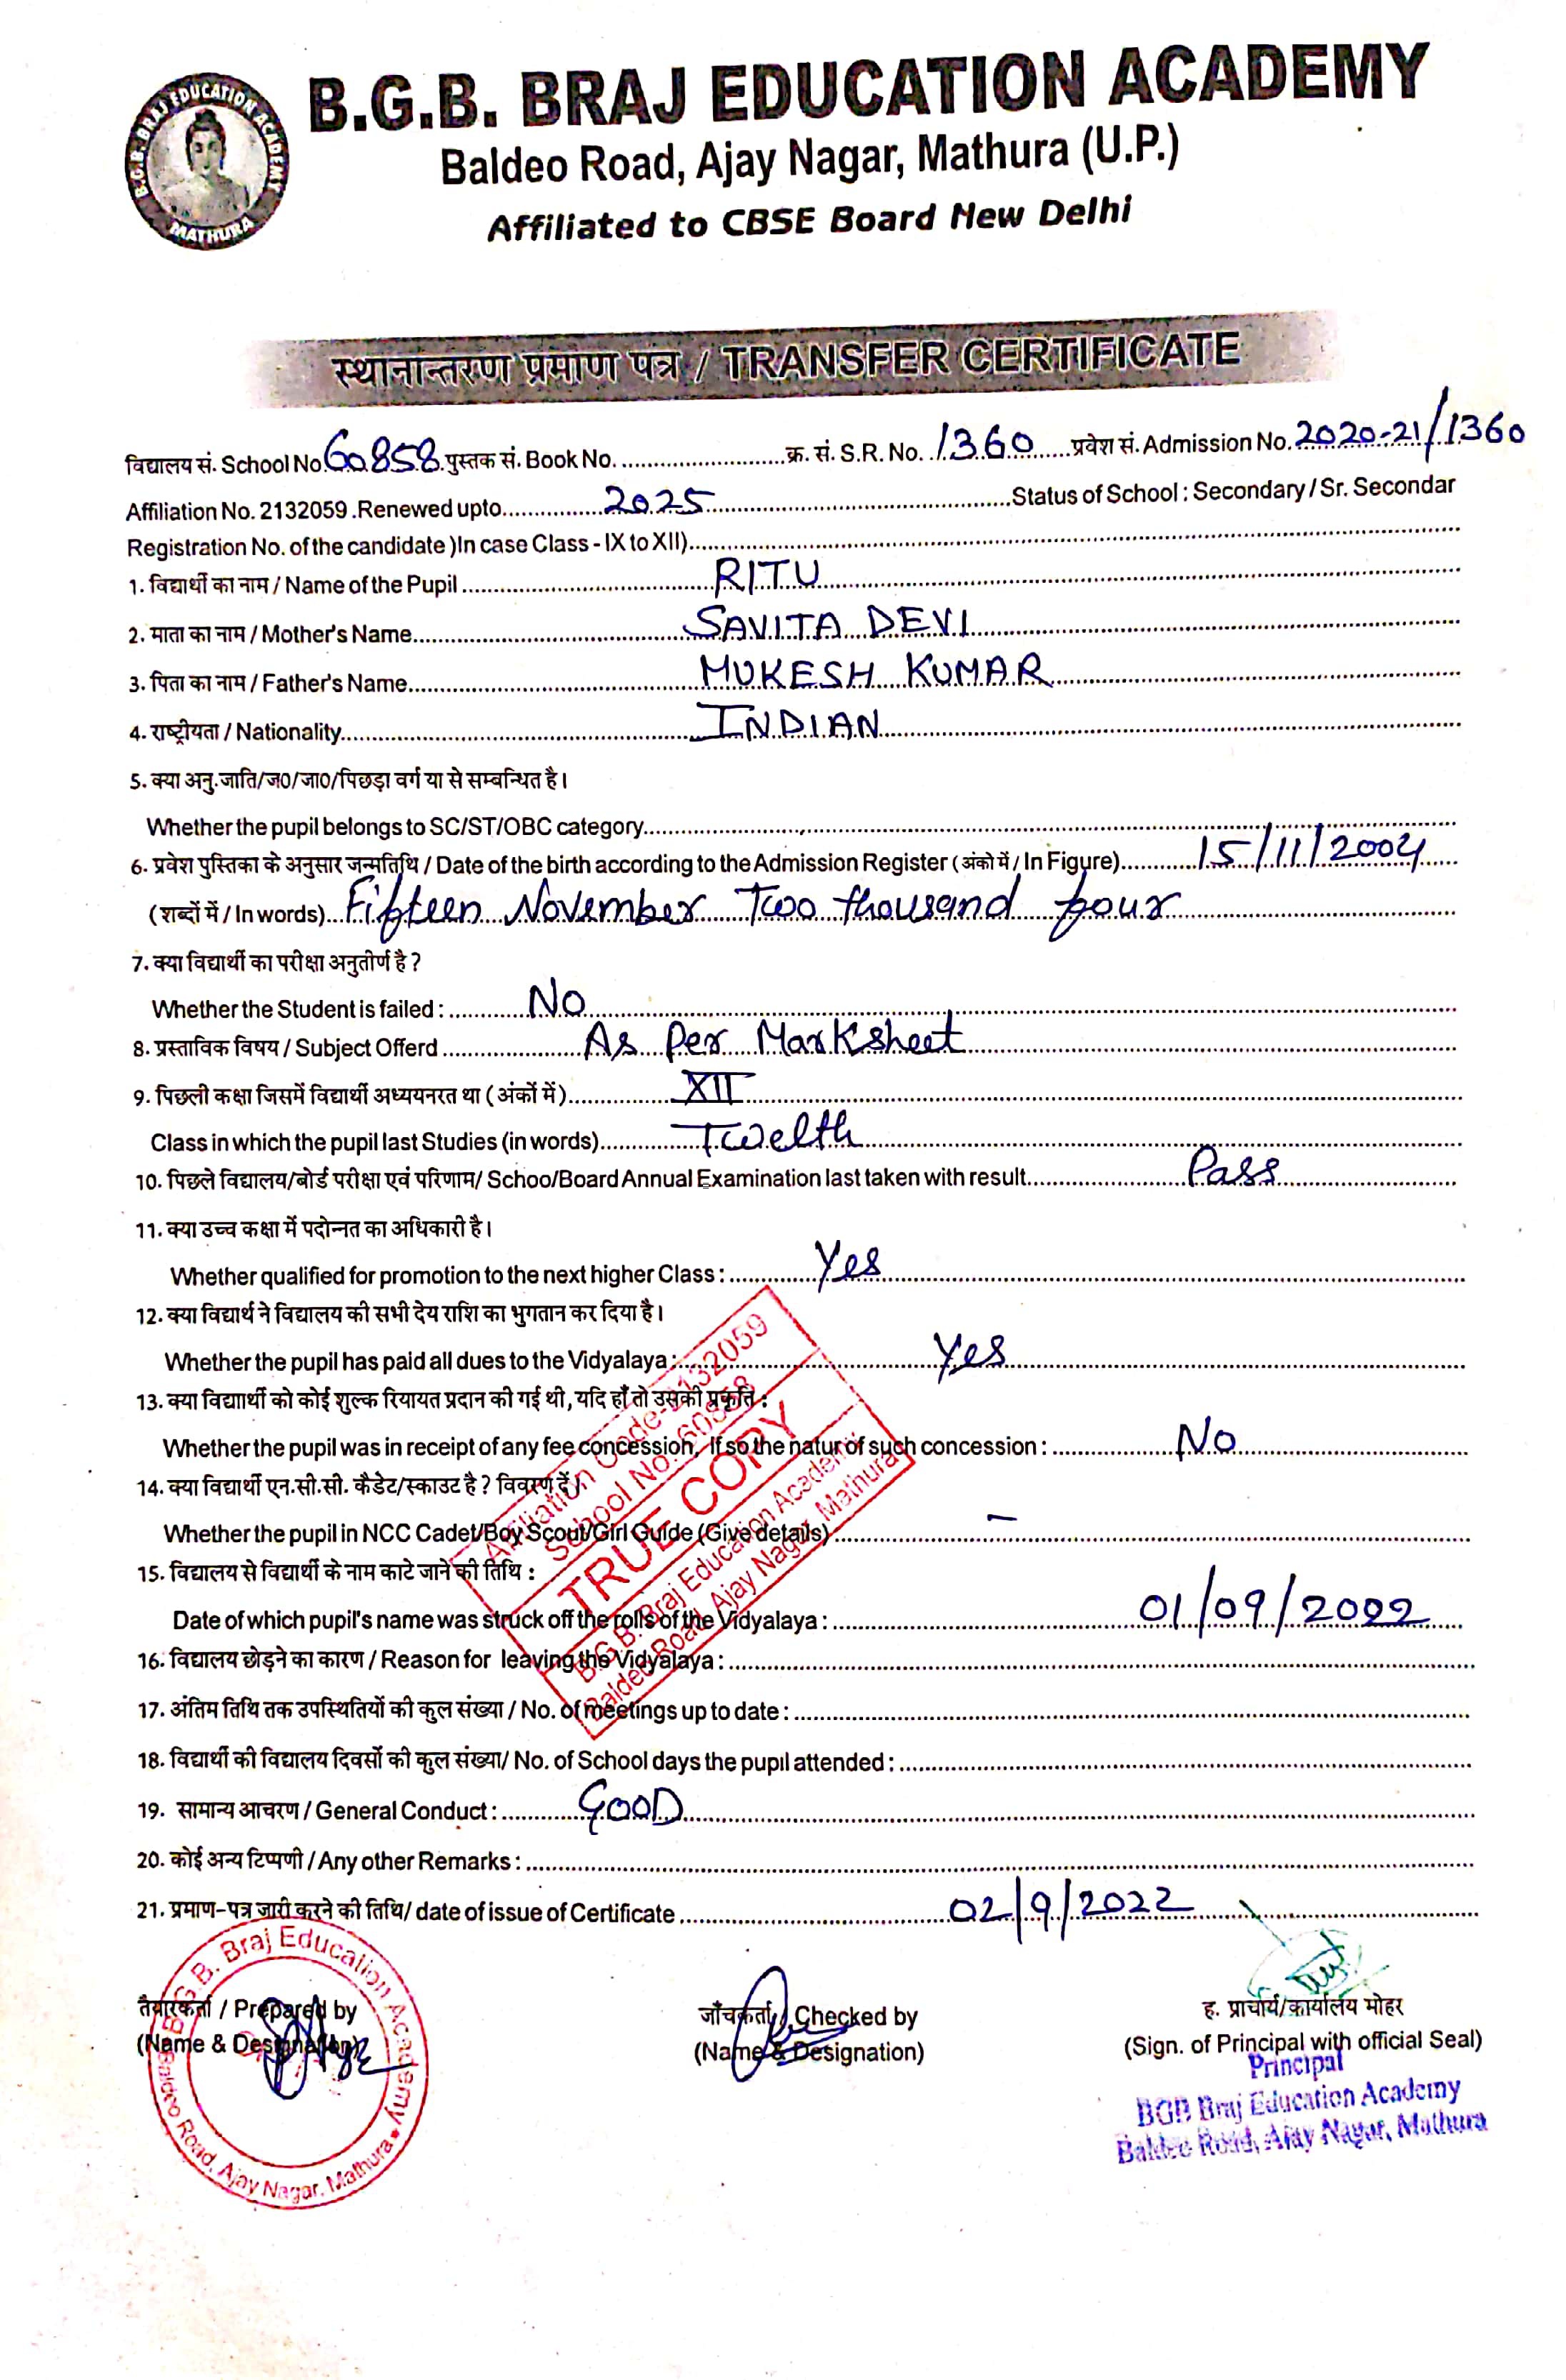 B.G.B. BRAJ EDUCATION ACADEMY
MATHURA
B.G.B. BRAJ EDUCATION ACADEMY
Baldeo Road, Ajay Nagar, Mathura (U.P.)
Affiliated to CBSE Board New Delhi
स्थानान्तरण प्रमाण पत्र / TRANSFER CERTIFICATE
विद्यालय सं. School No. 60858 पुस्तक सं. Book No. .......... क्र. सं. S.R. No. 1360 प्रवेश सं. Admission No. 2020-21/1360
Affiliation No. 2132059 .Renewed upto.......... 2025 ..........Status of School : Secondary / Sr. Secondar
Registration No. of the candidate )In case Class - IX to XII)..........
1. विद्यार्थी का नाम / Name of the Pupil .......... RITU
2. माता का नाम / Mother's Name.......... SAVITA DEVI
3. पिता का नाम / Father's Name.......... MUKESH KUMAR
4. राष्ट्रीयता / Nationality.......... INDIAN
5. क्या अनु.जाति/ज0/जा0/पिछड़ा वर्ग या से सम्बन्धित है।
Whether the pupil belongs to SC/ST/OBC category..........
6. प्रवेश पुस्तिका के अनुसार जन्मतिथि / Date of the birth according to the Admission Register ( अंको में / In Figure).......... 15/11/2004
( शब्दों में / In words).. Fifteen November Two thousand four
7. क्या विद्यार्थी का परीक्षा अनुतीर्ण है ?
Whether the Student is failed : .......... No
8. प्रस्ताविक विषय / Subject Offerd .......... As Per Marksheet
9. पिछली कक्षा जिसमें विद्यार्थी अध्ययनरत था ( अंकों में ).......... XII
Class in which the pupil last Studies (in words).......... Twelth
10. पिछले विद्यालय/बोर्ड परीक्षा एवं परिणाम/ Schoo/Board Annual Examination last taken with result.......... Pass
11. क्या उच्च कक्षा में पदोन्नत का अधिकारी है।
Whether qualified for promotion to the next higher Class : .......... Yes
12. क्या विद्यार्थ ने विद्यालय की सभी देय राशि का भुगतान कर दिया है।
Whether the pupil has paid all dues to the Vidyalaya : .......... Yes
13. क्या विद्याार्थी को कोई शुल्क रियायत प्रदान की गई थी, यदि हाँ तो उसकी प्रकृति :
Whether the pupil was in receipt of any fee concession, If so the natur of such concession : .......... No
14. क्या विद्यार्थी एन.सी.सी. कैडेट/स्काउट है ? विवरण दें।
Whether the pupil in NCC Cadet/Boy Scout/Girl Guide (Give details) .......... –
15. विद्यालय से विद्यार्थी के नाम काटे जाने की तिथि :
Date of which pupil's name was struck off the rolls of the Vidyalaya : .......... 01/09/2022
16. विद्यालय छोड़ने का कारण / Reason for leaving the Vidyalaya : ..........
17. अंतिम तिथि तक उपस्थितियों की कुल संख्या / No. of meetings up to date : ..........
18. विद्यार्थी की विद्यालय दिवसों की कुल संख्या/ No. of School days the pupil attended : ..........
19. सामान्य आचरण / General Conduct : .......... GOOD
20. कोई अन्य टिप्पणी / Any other Remarks : ..........
21. प्रमाण-पत्र जारी करने की तिथि/ date of issue of Certificate .......... 02/9/2022
Affiliation Code-2132059
School No. 60858
TRUE COPY
B.G.B. Braj Education Academy
Baldeo Road, Ajay Nagar, Mathura
तैयारकर्ता / Prepared by
(Name & Designation)
B.G.B. Braj Education Academy
Baldeo Road, Ajay Nagar, Mathura
जाँचकर्ता / Checked by
(Name & Designation)
ह. प्राचार्य/कार्यालय मोहर
(Sign. of Principal with official Seal)
Principal
BGB Braj Education Academy
Baldeo Road, Ajay Nagar, Mathura